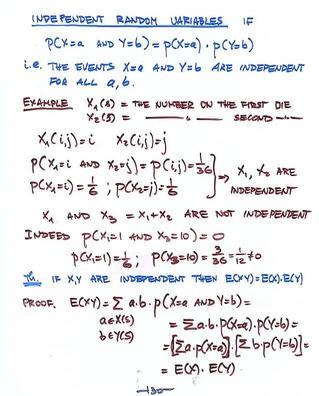 INDEPENDENT RANDOM VARIABLES IF
p(X=a AND Y=b) = p(X=a) · p(Y=b)
i.e. THE EVENTS X=a AND Y=b ARE INDEPENDENT
FOR ALL a, b.
EXAMPLE X₁(s) = THE NUMBER ON THE FIRST DIE
X₂(s) = —— " —— SECOND —"—
X₁(i,j)=i X₂(i,j)=j
p(X₁=i AND X₂=j) = p(i,j) = 1/36
p(X₁=i) = 1/6 ; p(X₂=j) = 1/6 ⇒ X₁, X₂ ARE
INDEPENDENT
X₁ AND X₃ = X₁+X₂ ARE NOT INDEPENDENT
INDEED p(X₁=1 AND X₃=10) = 0
p(X₁=1) = 1/6 ; p(X₃=10) = 3/36 = 1/12 ≠ 0
Th. IF X,Y ARE INDEPENDENT THEN E(XY)=E(X).E(Y)
PROOF. E(XY) = Σ a.b.p(X=a AND Y=b) =
a∈X(S)
b∈Y(S)
= Σ a.b.p(X=a).p(Y=b) =
= [Σ a.p(X=a)].[Σ b.p(Y=b)] =
= E(X).E(Y)
—130—